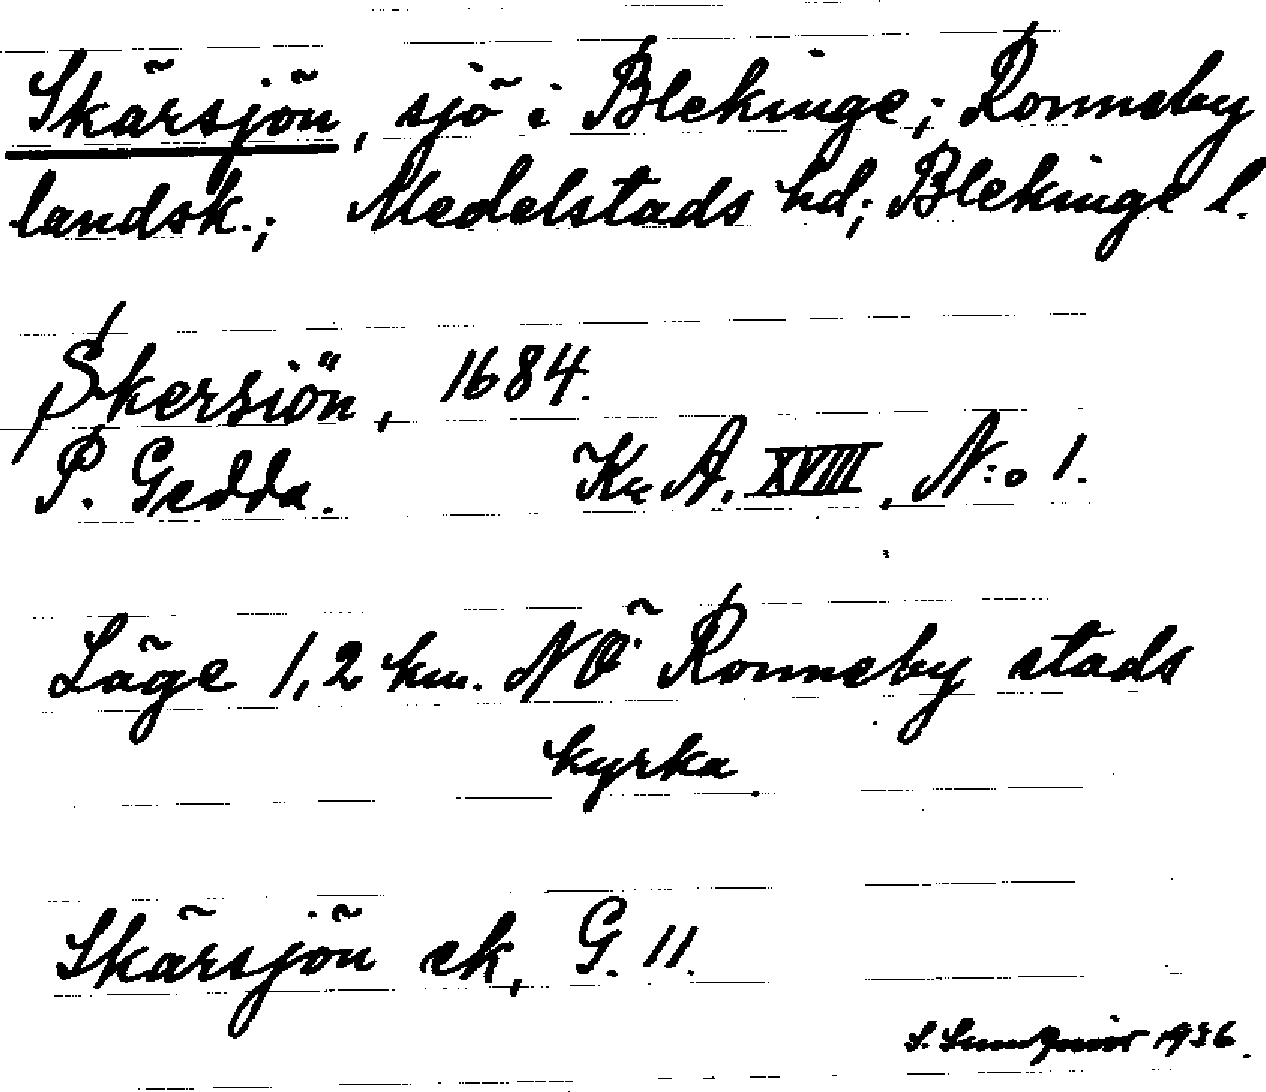 Skärsjön, sjö i Blekinge; Ronneby
landsk.; Medelstads hd; Blekinge l.
Skersiön, 1684.
P. Gedda. Kr A. XVIII, N:o 1.
Läge 1,2 km. NÖ Ronneby stads
kyrka.
Skärsjön ek, G. 11.
S. 1936.